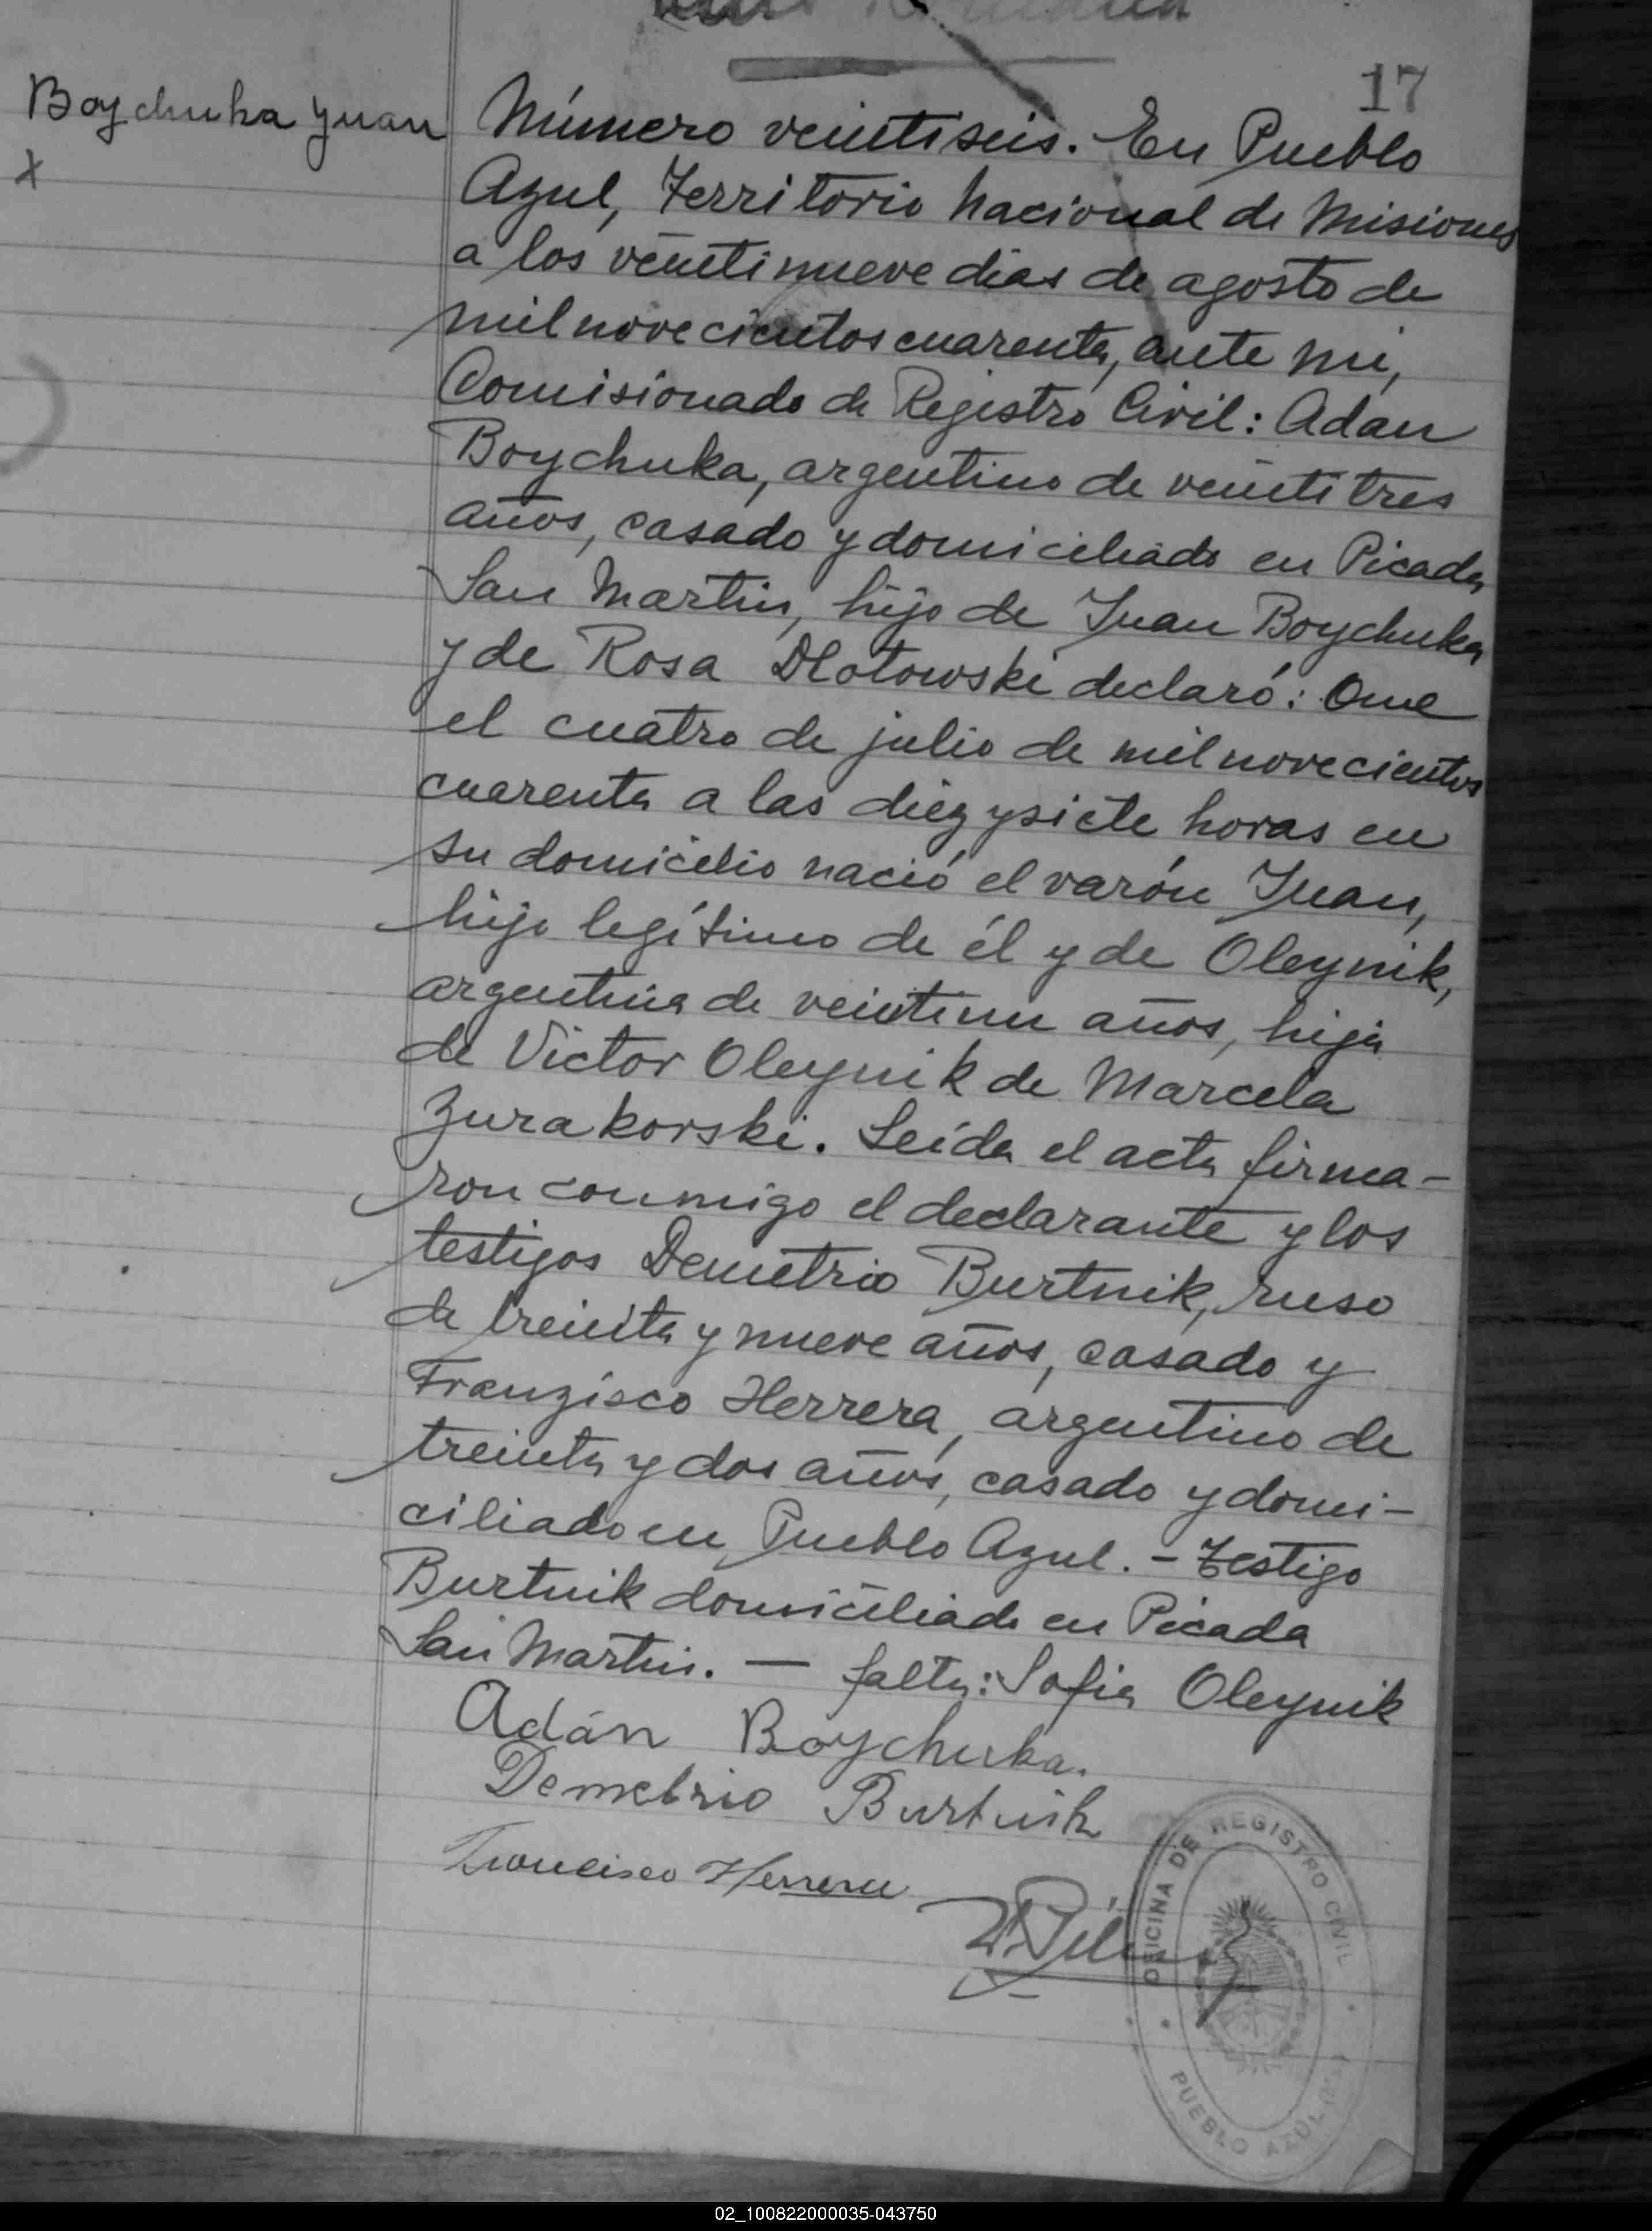 17
Boychuka Juan
X
Número veintiseis. En Pueblo
Azul, Territorio Nacional de Misiones
a los veintinueve dias de agosto de
mil novecientos cuarenta, ante mi,
Comisionado de Registro Civil: Adan
Boychuka, argentino de veintitres
años, casado y domiciliado en Picada
San Martin, hijo de Juan Boychuka
y de Rosa Dlotowski declaró: Que
el cuatro de julio de mil novecientos
cuarenta a las diez y siete horas en
su domicilio nació el varón Juan,
hijo legítimo de él y de Oleynik,
argentina de veintiun años, hija
de Victor Oleynik de Marcela
Zurakorski. Leída el acta firma-
ron conmigo el declarante y los
testigos Demetrio Burtnik, ruso
de treinta y nueve años, casado y
Franzisco Herrera, argentino de
treinta y dos años, casado y domi-
ciliado en Pueblo Azul. - Testigo
Burtnik domiciliado en Picada
San Martin. — falta: Sofia Oleynik
Adán Boychuka.
Demetrio Burtnik
Francisco Herrera
OFICINA DE REGISTRO CIVIL
PUEBLO AZUL
02_100822000035-043750